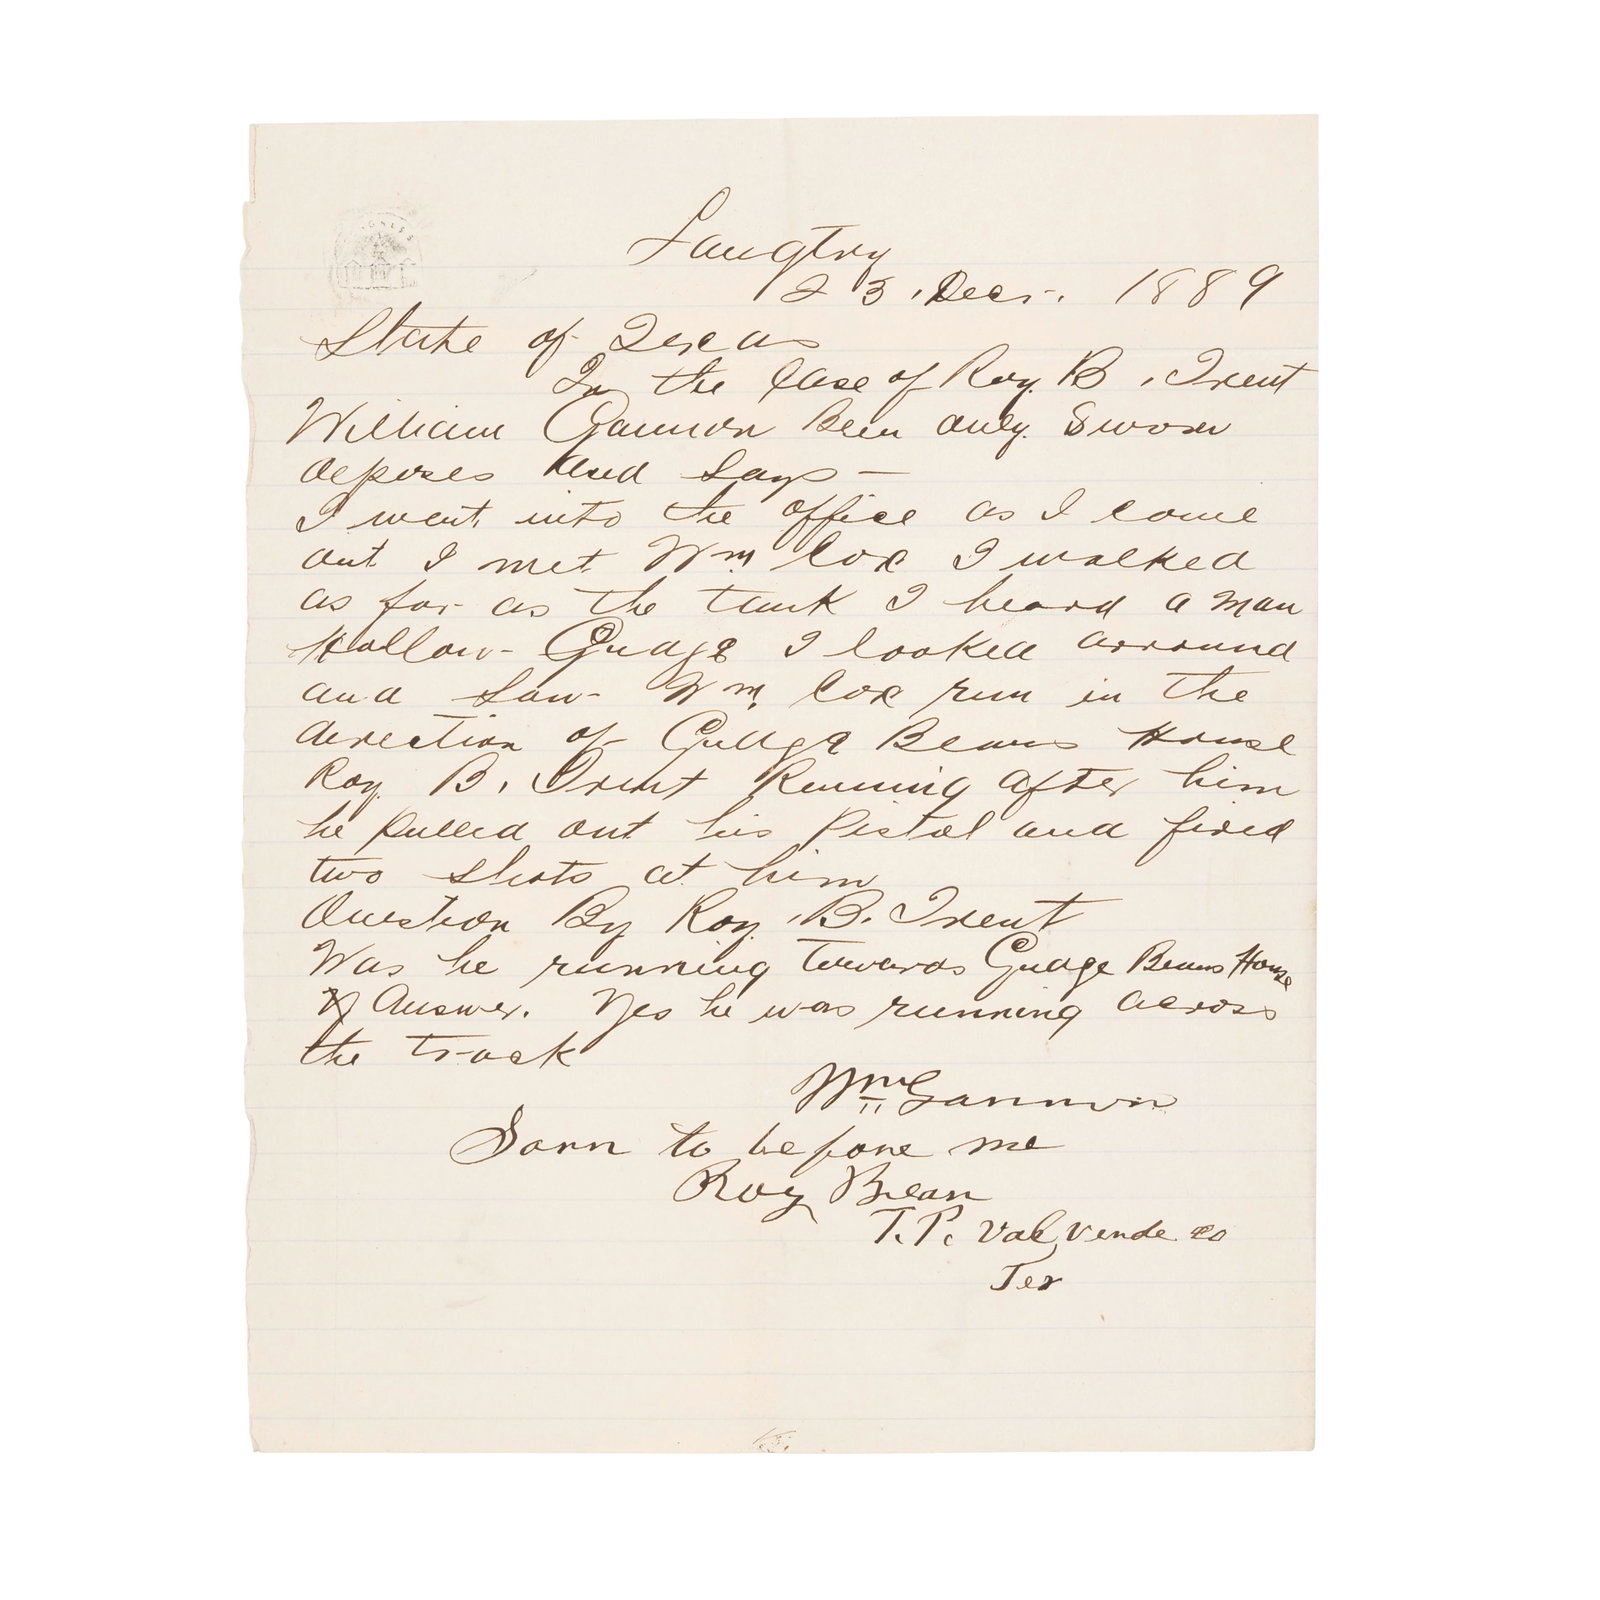 CONGRESS
Langtry
23. Decr. 1889
State of Texas
In the Case of Roy. B. Trent
William Gannon Been duly. Sworn
deposes and Says —
I went into the office as I come
out I met Wm Cox I walked
as far as the tank I heard a man
Hollow Gudge I looked arround
and Saw Wm. Cox run in the
direction of Gudge Beans House
Roy. B. Trent Running after him
he pulled out his Pistol and fired
two shots at him
Question By Roy. B. Trent
Was he running Towards Gudge Beans House
Answer. Yes he was running across
the track
Wm Gannon
Sorn to before me
Roy Bean
T.P. Val Verde Co
Tex